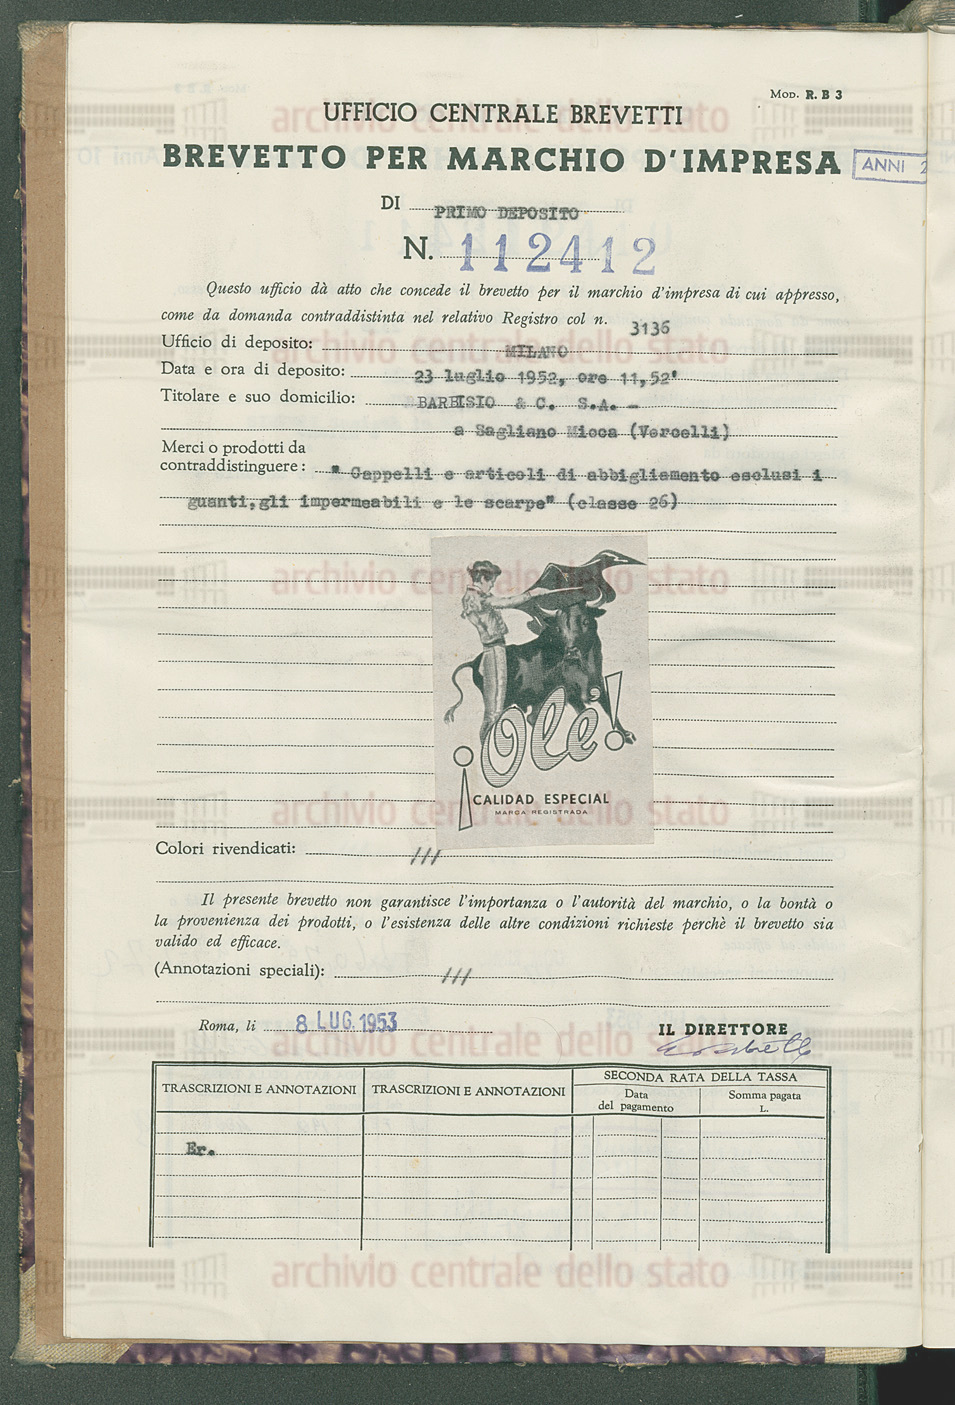 Mod. R. B 3
UFFICIO CENTRALE BREVETTI
BREVETTO PER MARCHIO D'IMPRESA
ANNI 2
DI PRIMO DEPOSITO
N. 112412
Questo ufficio dà atto che concede il brevetto per il marchio d'impresa di cui appresso,
come da domanda contraddistinta nel relativo Registro col n. 3136
Ufficio di deposito: MILANO
Data e ora di deposito: 23 luglio 1952, ore 11,52'
Titolare e suo domicilio: BARBISIO & C. S.A. -
a Sagliano Micca (Vercelli)
Merci o prodotti da
contraddistinguere: " Cappelli e articoli di abbigliamento esclusi i
guanti, gli impermeabili e le scarpe" (classe 26)
¡Olé!
CALIDAD ESPECIAL
MARCA REGISTRADA
Colori rivendicati: ///
Il presente brevetto non garantisce l'importanza o l'autorità del marchio, o la bontà o
la provenienza dei prodotti, o l'esistenza delle altre condizioni richieste perchè il brevetto sia
valido ed efficace.
(Annotazioni speciali): ///
Roma, li 8 LUG. 1953
IL DIRETTORE
TRASCRIZIONI E ANNOTAZIONI
TRASCRIZIONI E ANNOTAZIONI
SECONDA RATA DELLA TASSA
Data
del pagamento
Somma pagata
L.
Er.
archivio centrale dello stato
archivio centrale dello stato
archivio centrale dello stato
archivio centrale dello stato
archivio centrale dello stato
archivio centrale dello stato